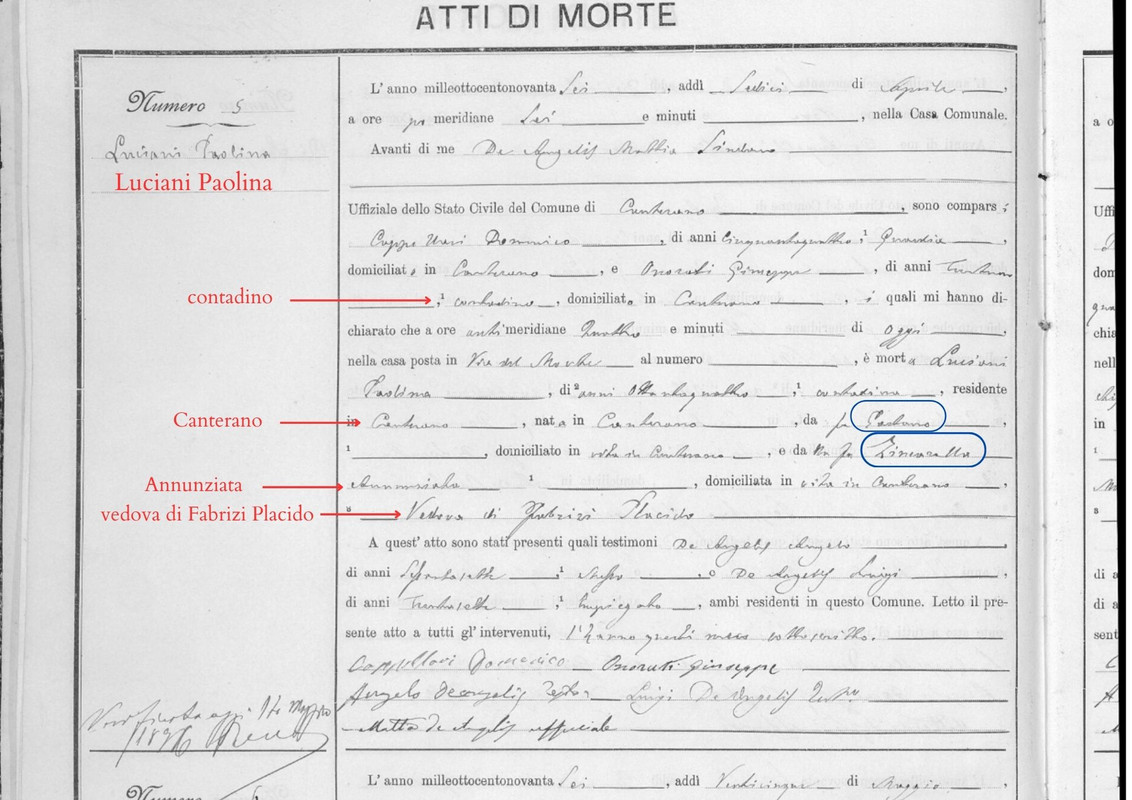 ATTI DI MORTE
Numero 5
Luciani Paolina
Luciani Paolina
L' anno milleottocentonovanta Sei, addì Sedici di Aprile,
a ore po meridiane Sei e minuti, nella Casa Comunale.
Avanti di me De Angelis Mattia Sindaco
Uffiziale dello Stato Civile del Comune di Canterano, sono compars i
Domenico, di anni cinquantaquattro, ¹ Guardia,
domiciliato in Canterano, e Onorati Giuseppe, di anni
contadino
, ¹ contadino, domiciliato in Canterano, i quali mi hanno di-
chiarato che a ore antimeridiane Quattro e minuti di oggi,
nella casa posta in Via del Monte al numero, è morta Luciani
Paolina, di ² anni Ottantaquattro, ¹ contadina, residente
Canterano
in Canterano, nata in Canterano, da fu
¹, domiciliato in vita in Canterano, e da fu
Annunziata
Annunziata ¹, domiciliata in vita in Canterano,
vedova di Fabrizi Placido
³ Vedova di Fabrizi Placido
A quest' atto sono stati presenti quali testimoni De Angelis Angelo
di anni, ¹, e De Angelis Luigi
di anni Trentasette, ¹ Impiegato, ambi residenti in questo Comune. Letto il pre-
sente atto a tutti gl' intervenuti, l'hanno questi meco sottoscritto.
Domenico Onorati Giuseppe
Angelo Deangelis Luigi De Angelis
Mattia de Angelis ufficiale
1896
Numero 6
L' anno milleottocentonovanta Sei, addì Venticinque di Maggio,